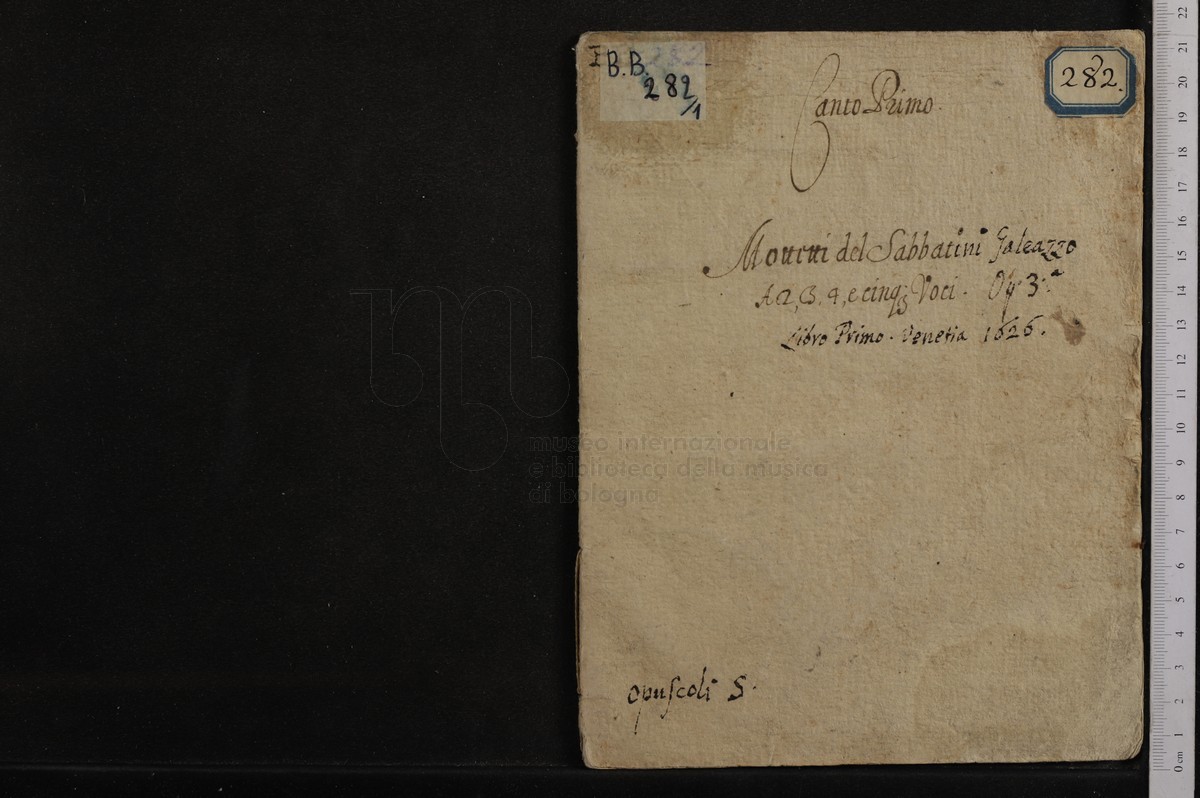 B.B.
282
/1
282.
Canto Primo.
Mottetti del Sabbatini Galeazzo
A 2, 3. 4, e cinq; Voci. Op. 3.ª
Libro Primo. Venetia 1626.
opuscoli 5.
museo internazionale
e biblioteca della musica
di bologna
22
21
20
19
18
17
16
15
14
13
12
11
10
9
8
7
6
5
4
3
2
1
0 cm